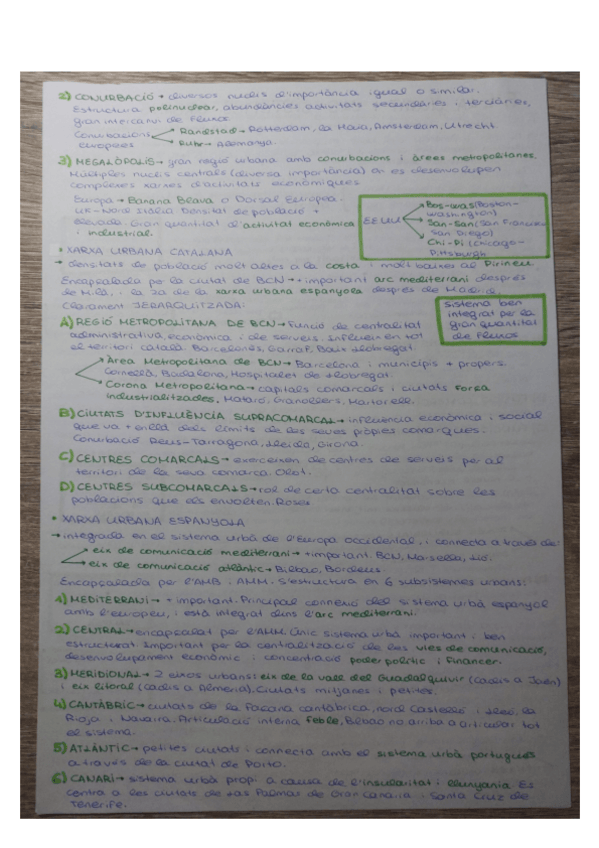 2) CONURBACIÓ → diversos nuclis d'importància igual o similar.
Estructura polinuclear, abundàncies activitats secundàries i terciàries,
gran intercanvi de fluxos.
Conurbacions europees → Randstad → Rotterdam, La Haia, Amsterdam, Utrecht.
→ Ruhr → Alemanya.
3) MEGALÒPOLIS → gran regió urbana amb conurbacions i àrees metropolitanes.
Múltiples nuclis centrals (diversa importància) on es desenvolupen
complexes xarxes d'activitats econòmiques
Europa → Banana Blava o Dorsal Europea.
UK - Nord Itàlia Densitat de població +
elevada. Gran quantitat d'activitat econòmica
i industrial.
EEUU → Bos-Was (Boston-
Washington)
→ San-San (San Francisco
San Diego)
→ Chi-Pi (Chicago-
Pittsburgh
• XARXA URBANA CATALANA
→ densitats de població molt altes a la costa i molt baixes al Pirineu.
Encapsalada per la ciutat de BCN → + important arc mediterrani després
de Milà, i la 2a de la xarxa urbana espanyola després de Madrid.
Clarament JERARQUITZADA:
sistema ben
integrat per la
gran quantitat
de fluxos
A) REGIÓ METROPOLITANA DE BCN → Funció de centralitat
administrativa, econòmica i de serveis. Influeix en tot
el territori català. Barcelonès, Garraf, Baix Llobregat.
→ Àrea Metropolitana de BCN → Barcelona i municipis + propers.
Cornellà, Badalona, Hospitalet de Llobregat.
→ Corona Metropolitana → capitals comarcals i ciutats força
industrialitzades. Mataró, Granollers, Martorell.
B) CIUTATS D'INFLUÈNCIA SUPRACOMARCAL → influència econòmica i social
que va + enllà dels límits de les seves pròpies comarques.
Conurbació Reus-Tarragona, Lleida, Girona.
C) CENTRES COMARCALS → exerceixen de centres de serveis per al
territori de la seva comarca. Olot.
D) CENTRES SUBCOMARCALS → rol de certa centralitat sobre les
poblacions que els envolten. Roses
• XARXA URBANA ESPANYOLA
→ integrada en el sistema urbà de l'Europa occidental, i connecta a través de:
→ eix de comunicació mediterrani → + important. BCN, Marsella, Lió.
→ eix de comunicació atlàntic → Bilbao, Bordeus.
Encapsalada per l'AMB i AMM. S'estructura en 6 subsistemes urbans:
1) MEDITERRANI → + important. Principal connexió del sistema urbà espanyol
amb l'europeu, i està integrat dins l'arc mediterrani.
2) CENTRAL → encapsalat per l'AMM. Únic sistema urbà important i ben
estructurat. Important per la centralització de les vies de comunicació,
desenvolupament econòmic i concentració poder polític i financer.
3) MERIDIONAL → 2 eixos urbans: eix de la vall del Guadalquivir (Cadis a Jaén)
i eix litoral (Cadis a Almeria). Ciutats mitjanes i petites.
4) CANTÀBRIC → ciutats de la façana cantàbrica, nord Castelló i Lleó, la
Rioja i Navarra. Articulació interna feble, Bilbao no arriba a articular tot
el sistema.
5) ATLÀNTIC → petites ciutats i connecta amb el sistema urbà portuguès
a través de la ciutat de Porto.
6) CANARI → sistema urbà propi a causa de l'insularitat i llunyania. Es
centra a les ciutats de Las Palmas de Gran Canaria i Santa Cruz de
Tenerife.